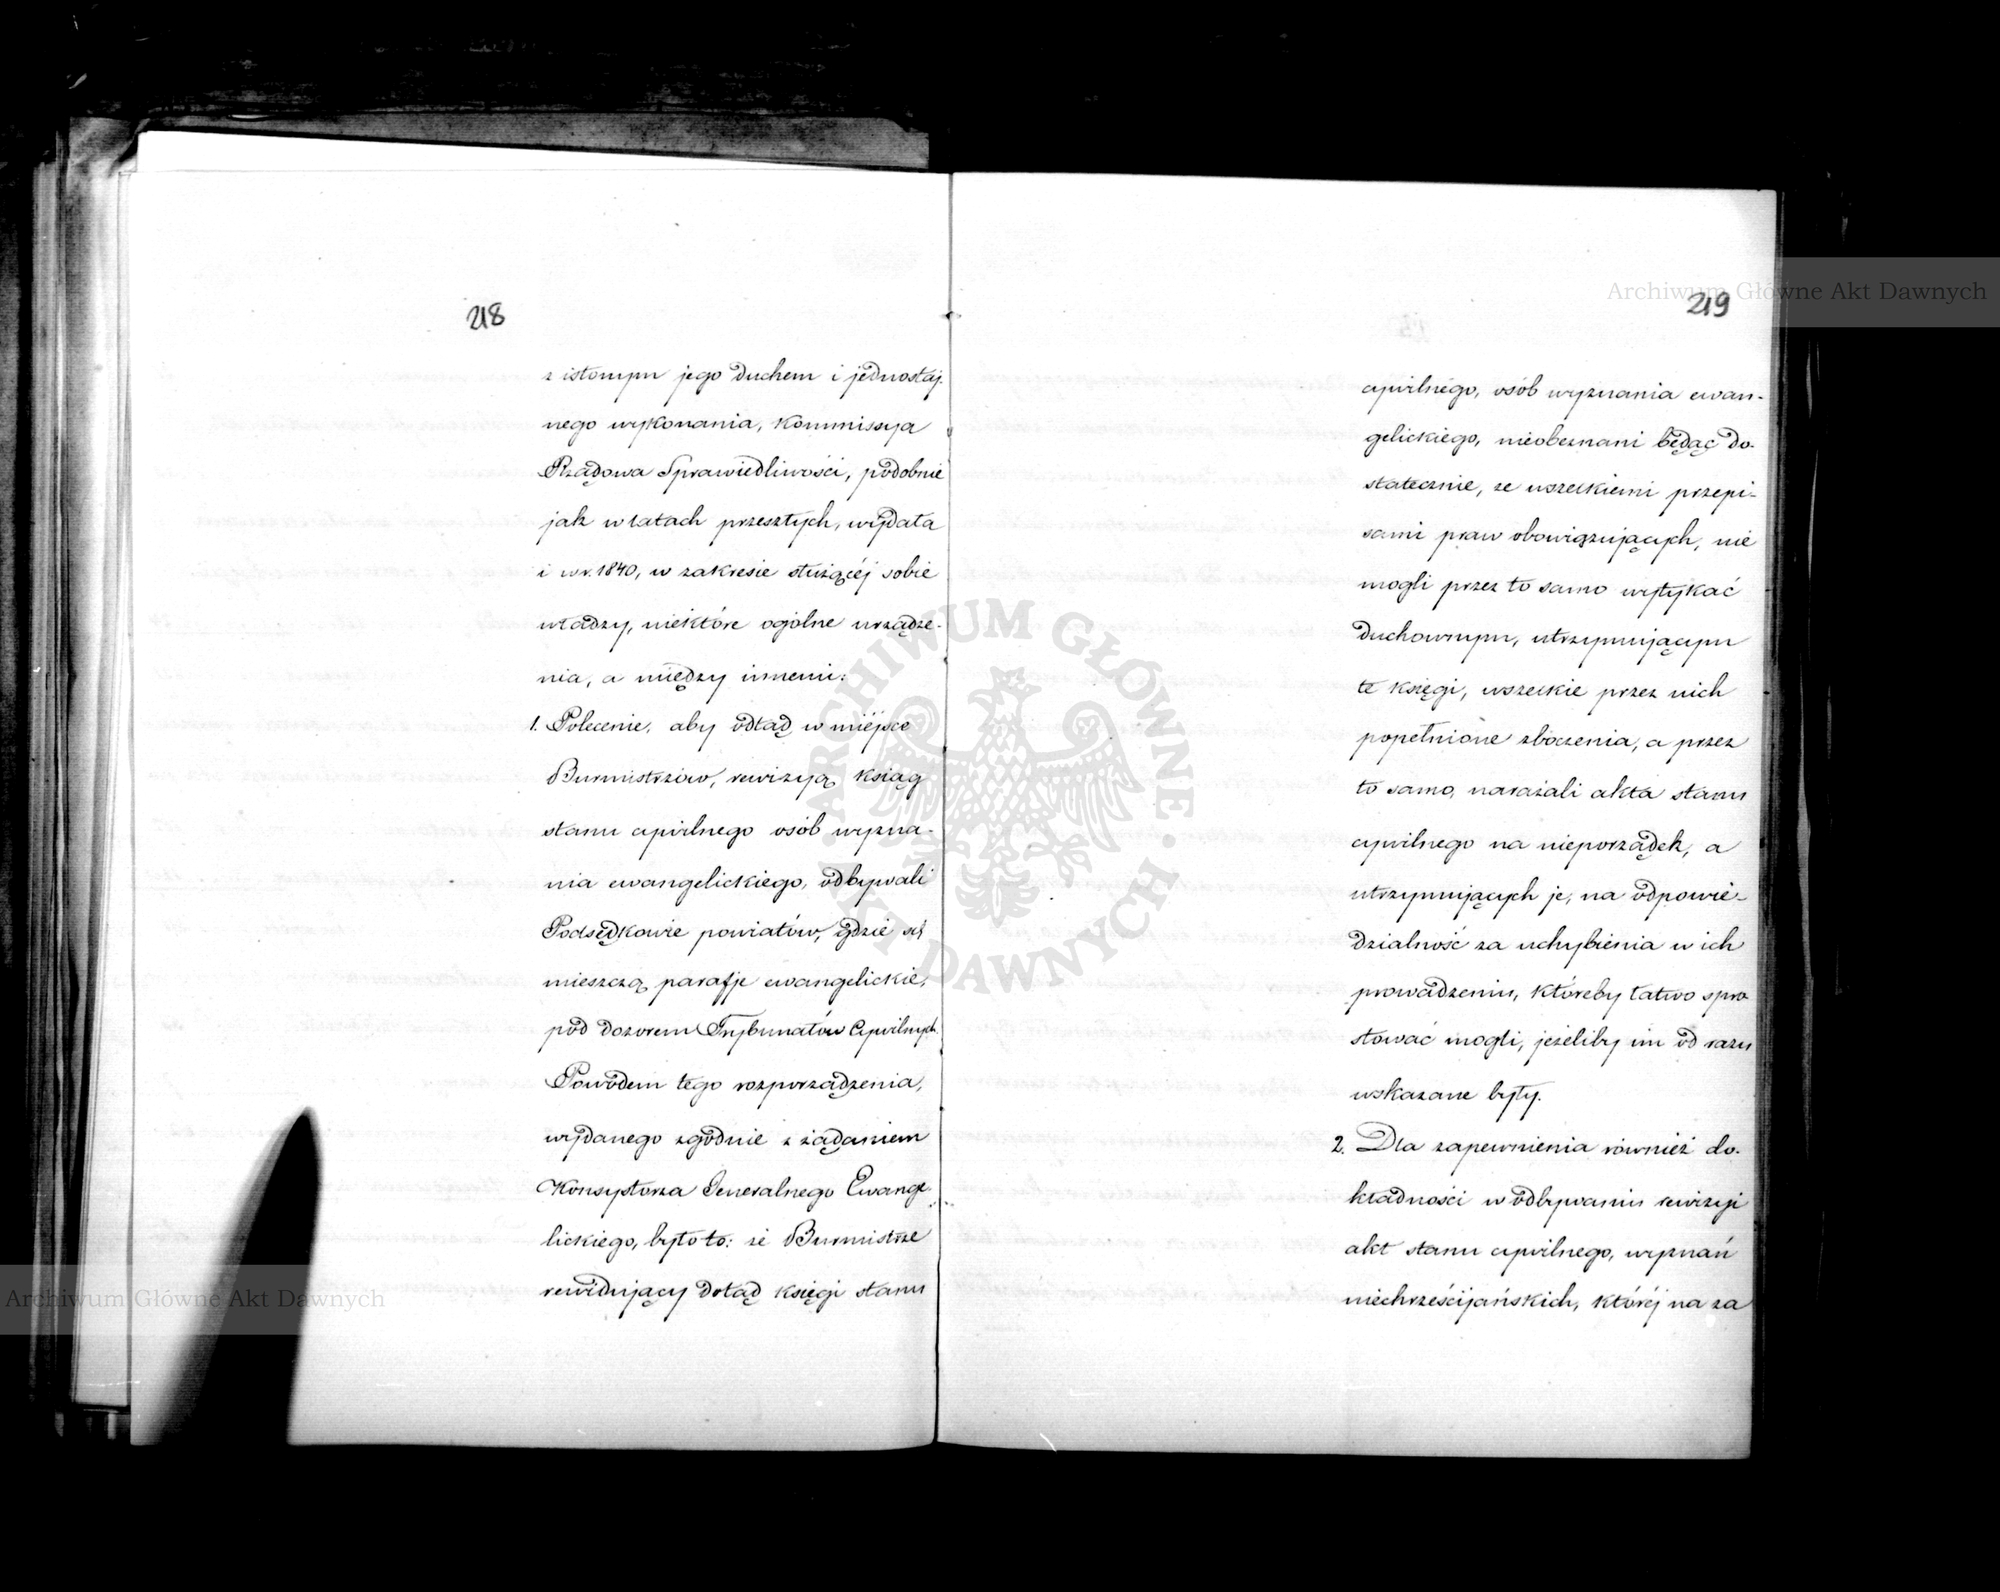 218
z istotnym jego duchem i jednostaj-
nego wykonania, Kommissya
Rządowa Sprawiedliwości, podobnie
jak w latach przeszłych, wydała
i w r. 1840, w zakresie służącéj sobie
władzy, niektóre ogólne urządze-
nia, a między innemi:
1. Polecenie, aby odtąd w miéjsce
Burmistrzów, rewizyą ksiąg
stanu cywilnego osób wyzna-
nia ewangelickiego, odbywali
Podsędkowie powiatów, gdzie się
mieszczą parafje ewangelickie,
pod dozorem Trybunałów Cywilnych.
Powodem tego rozporządzenia,
wydanego zgodnie z żądaniem
Konsystorza Generalnego Ewange-
lickiego, było to: że Burmistrze
rewidujący dotąd księgi stanu
219
cywilnego, osób wyznania ewan-
gelickiego, nieobeznani będąc do-
statecznie, ze wszelkiemi przepi-
sami praw obowiązujących, nie
mogli przez to samo wytykać
duchownym, utrzymującym
te księgi, wszelkie przez nich
popełnione zboczenia, a przez
to samo, narażali akta stanu
cywilnego na nieporządek, a
utrzymujących je, na odpowie-
dzialność za uchybienia w ich
prowadzeniu, któreby łatwo spro-
stować mogli, jeżeliby im od razu
wskazane były.
2. Dla zapewnienia również do-
kładności w odbywaniu rewizyi
akt stanu cywilnego, wyznań
niechrześcijańskich, któréj na za
Archiwum Główne Akt Dawnych
Archiwum Główne Akt Dawnych
ARCHIWUM GŁÓWNE · AKT DAWNYCH ·